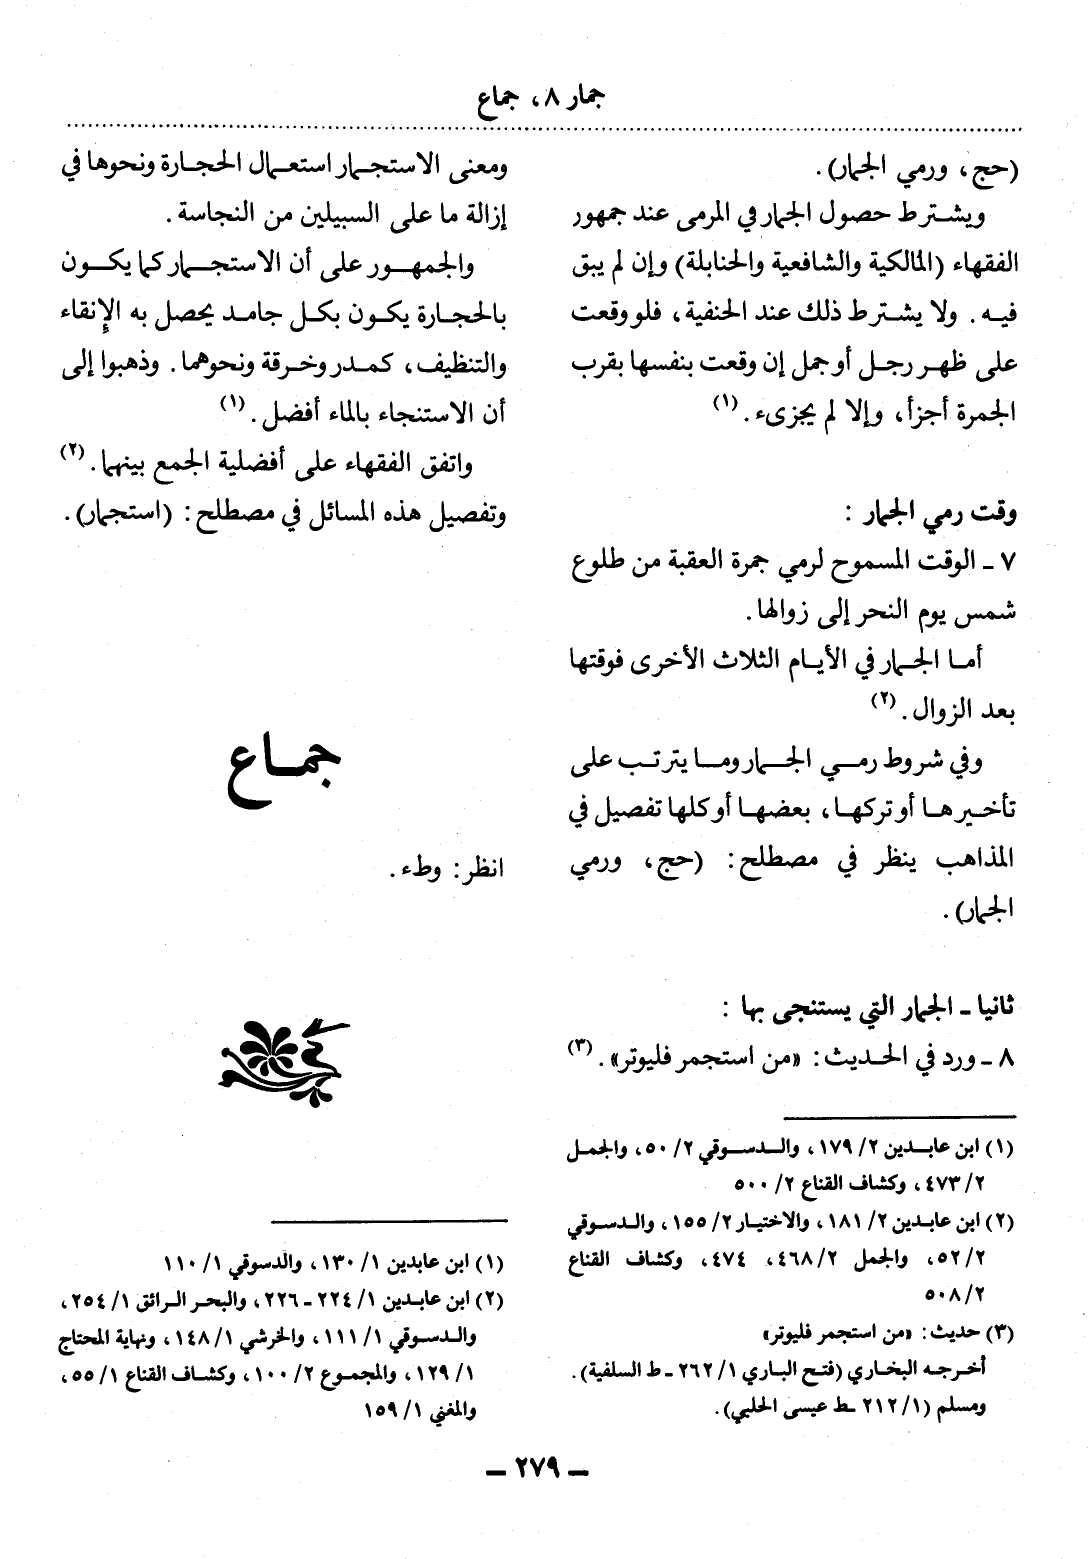 جمار ٨، جماع
(حج، ورمي الجمار).
ويشترط حصول الجمار في المرمى عند جمهور
الفقهاء (المالكية والشافعية والحنابلة) وإن لم يبق
فيه. ولا يشترط ذلك عند الحنفية، فلو وقعت
على ظهر رجل أو جمل إن وقعت بنفسها بقرب
الجمرة أجزأ، وإلا لم يجزىء. (١)
وقت رمي الجمار :
٧ ـ الوقت المسموح لرمي جمرة العقبة من طلوع
شمس يوم النحر إلى زوالها.
أما الجمار في الأيام الثلاث الأخرى فوقتها
بعد الزوال. (٢)
وفي شروط رمي الجمار وما يترتب على
تأخيرها أو تركها، بعضها أو كلها تفصيل في
المذاهب ينظر في مصطلح: (حج، ورمي
الجمار).
ثانيا ـ الجمار التي يستنجى بها :
٨ ـ ورد في الحديث: «من استجمر فليوتر». (٣)
(١) ابن عابدين ٢/ ١٧٩، والدسوقي ٢/ ٥٠، والجمل
٢/ ٤٧٣، وكشاف القناع ٢/ ٥٠٠
(٢) ابن عابدين ٢/ ١٨١، والاختيار ٢/ ١٥٥، والدسوقي
٢/ ٥٢، والجمل ٢/ ٤٦٨، ٤٧٤، وكشاف القناع
٢/ ٥٠٨
(٣) حديث: «من استجمر فليوتر»
أخرجه البخاري (فتح الباري ١/ ٢٦٢ ـ ط السلفية).
ومسلم (١/ ٢١٢ ـ ط عيسى الحلبي).
ومعنى الاستجمار استعمال الحجارة ونحوها في
إزالة ما على السبيلين من النجاسة.
والجمهور على أن الاستجمار كما يكون
بالحجارة يكون بكل جامد يحصل به الإنقاء
والتنظيف، كمدر وخرقة ونحوهما. وذهبوا إلى
أن الاستنجاء بالماء أفضل. (١)
واتفق الفقهاء على أفضلية الجمع بينهما. (٢)
وتفصيل هذه المسائل في مصطلح: (استجمار).
جماع
انظر: وطء.
(١) ابن عابدين ١/ ١٣٠، والدسوقي ١/ ١١٠
(٢) ابن عابدين ١/ ٢٢٤ ـ ٢٢٦، والبحر الرائق ١/ ٢٥٤،
والدسوقي ١/ ١١١، والخرشي ١/ ١٤٨، ونهاية المحتاج
١/ ١٢٩، والمجموع ٢/ ١٠٠، وكشاف القناع ١/ ٥٥،
والمغني ١/ ١٥٩
ـ ٢٧٩ ـ